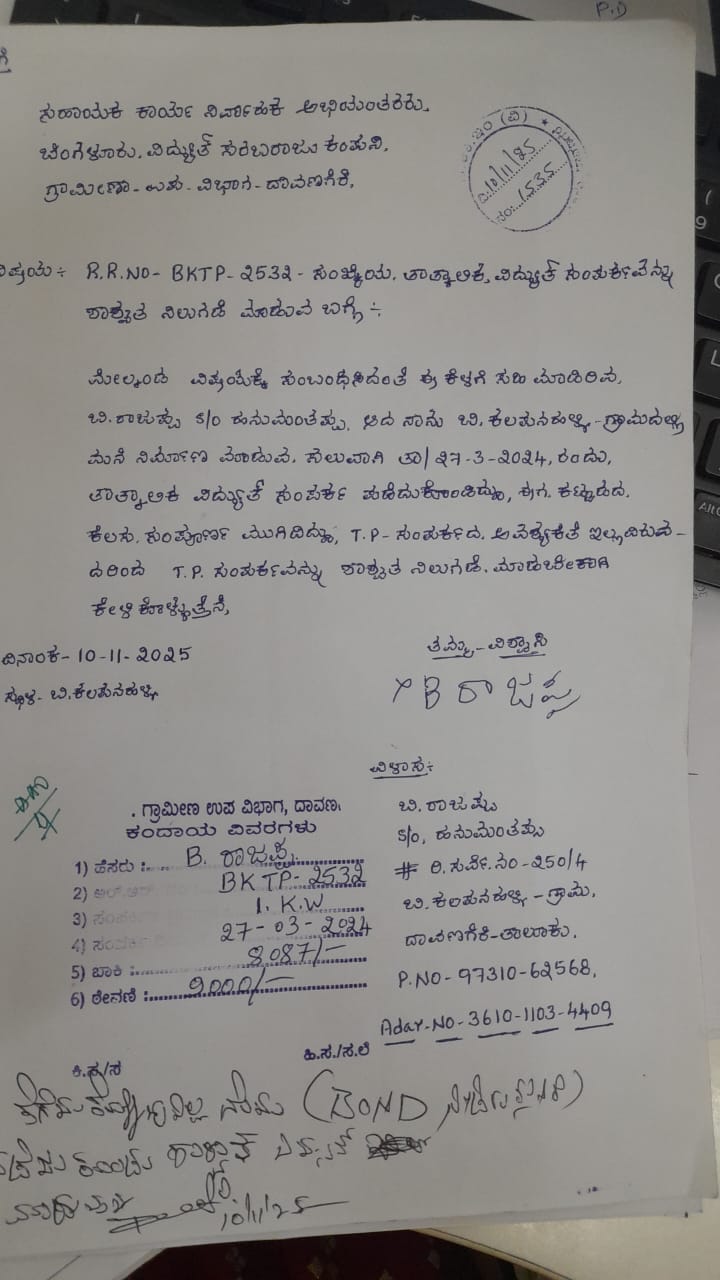 ಗೆ
ಸಹಾಯಕ ಕಾರ್ಯ ನಿರ್ವಾಹಕ ಅಭಿಯಂತರರು,
ಬೆಂಗಳೂರು. ವಿದ್ಯುತ್ ಸರಬರಾಜು ಕಂಪನಿ,
ಗ್ರಾಮೀಣಾ - ಉಪ - ವಿಭಾಗ - ದಾವಣಗೆರೆ,
(ವಿ)
ದಿ: 10/11/25
ನಂ: 1535
ವಿಷಯ ÷ R.R.NO - BKTP - 2532 - ಸಂಖ್ಯೆಯ. ತಾತ್ಕಾಲಿಕ ವಿದ್ಯುತ್ ಸಂಪರ್ಕವನ್ನು
ಶಾಶ್ವತ ನಿಲುಗಡೆ ಮಾಡುವ ಬಗ್ಗೆ ÷
ಮೇಲ್ಕಂಡ ವಿಷಯಕ್ಕೆ ಸಂಬಂಧಿಸಿದಂತೆ ಈ ಕೆಳಗೆ ಸಹಿ ಮಾಡಿರುವ,
ಬಿ. ರಾಜಪ್ಪ S/o ಹನುಮಂತಪ್ಪ, ಆದ ನಾನು ಬಿ. ಕಲಪನಹಳ್ಳಿ - ಗ್ರಾಮದಲ್ಲಿ
ಮನೆ ನಿರ್ಮಾಣ ಮಾಡುವ. ಸಲುವಾಗಿ ತಾ| 27-3-2024, ರಂದು,
ತಾತ್ಕಾಲಿಕ ವಿದ್ಯುತ್ ಸಂಪರ್ಕ ಪಡೆದುಕೊಂಡಿದ್ದು, ಈಗ. ಕಟ್ಟಡದ.
ಕೆಲಸ. ಸಂಪೂರ್ಣ ಮುಗಿದಿದ್ದು, T.P - ಸಂಪರ್ಕದ. ಅವಶ್ಯಕತೆ ಇಲ್ಲವಿರುವ -
ದರಿಂದ T.P. ಸಂಪರ್ಕವನ್ನು ಶಾಶ್ವತ ನಿಲುಗಡೆ. ಮಾಡಬೇಕಾಗಿ
ಕೇಳಿಕೊಳ್ಳುತ್ತೇನೆ,
ದಿನಾಂಕ - 10-11-2025
ತಮ್ಮ - ವಿಶ್ವಾಸಿ
ಸ್ಥಳ - ಬಿ. ಕಲಪನಹಳ್ಳಿ
B ರಾಜಪ್ಪ
ವಿಳಾಸ:
ಬಿ. ರಾಜಪ್ಪ
S/o, ಹನುಮಂತಪ್ಪ
# ರಿ. ಸರ್ವೆ. ನಂ - 250/4
ಬಿ. ಕಲಪನಹಳ್ಳಿ - ಗ್ರಾಮ,
ದಾವಣಗೆರೆ - ತಾಲೂಕು.
P.NO - 97310-62568,
Adar-No - 3610-1103-4409
. ಗ್ರಾಮೀಣ ಉಪ ವಿಭಾಗ, ದಾವಣ.
ಕಂದಾಯ ವಿವರಗಳು
1) ಹೆಸರು : B. ರಾಜಪ್ಪ
2) ಆರ್.ಆರ್ BKTP - 2532
3) ಸಂಪರ್ಕ 1. K.W
4) ಸಂಪರ್ಕ 27-03-2024
5) ಬಾಕಿ : 8087/-
6) ಠೇವಣಿ : 9000/-
ಕಿ.ಸ/ಸ ಹಿ.ಸ./ಸ.ಲೆ
(BOND
10/11/25